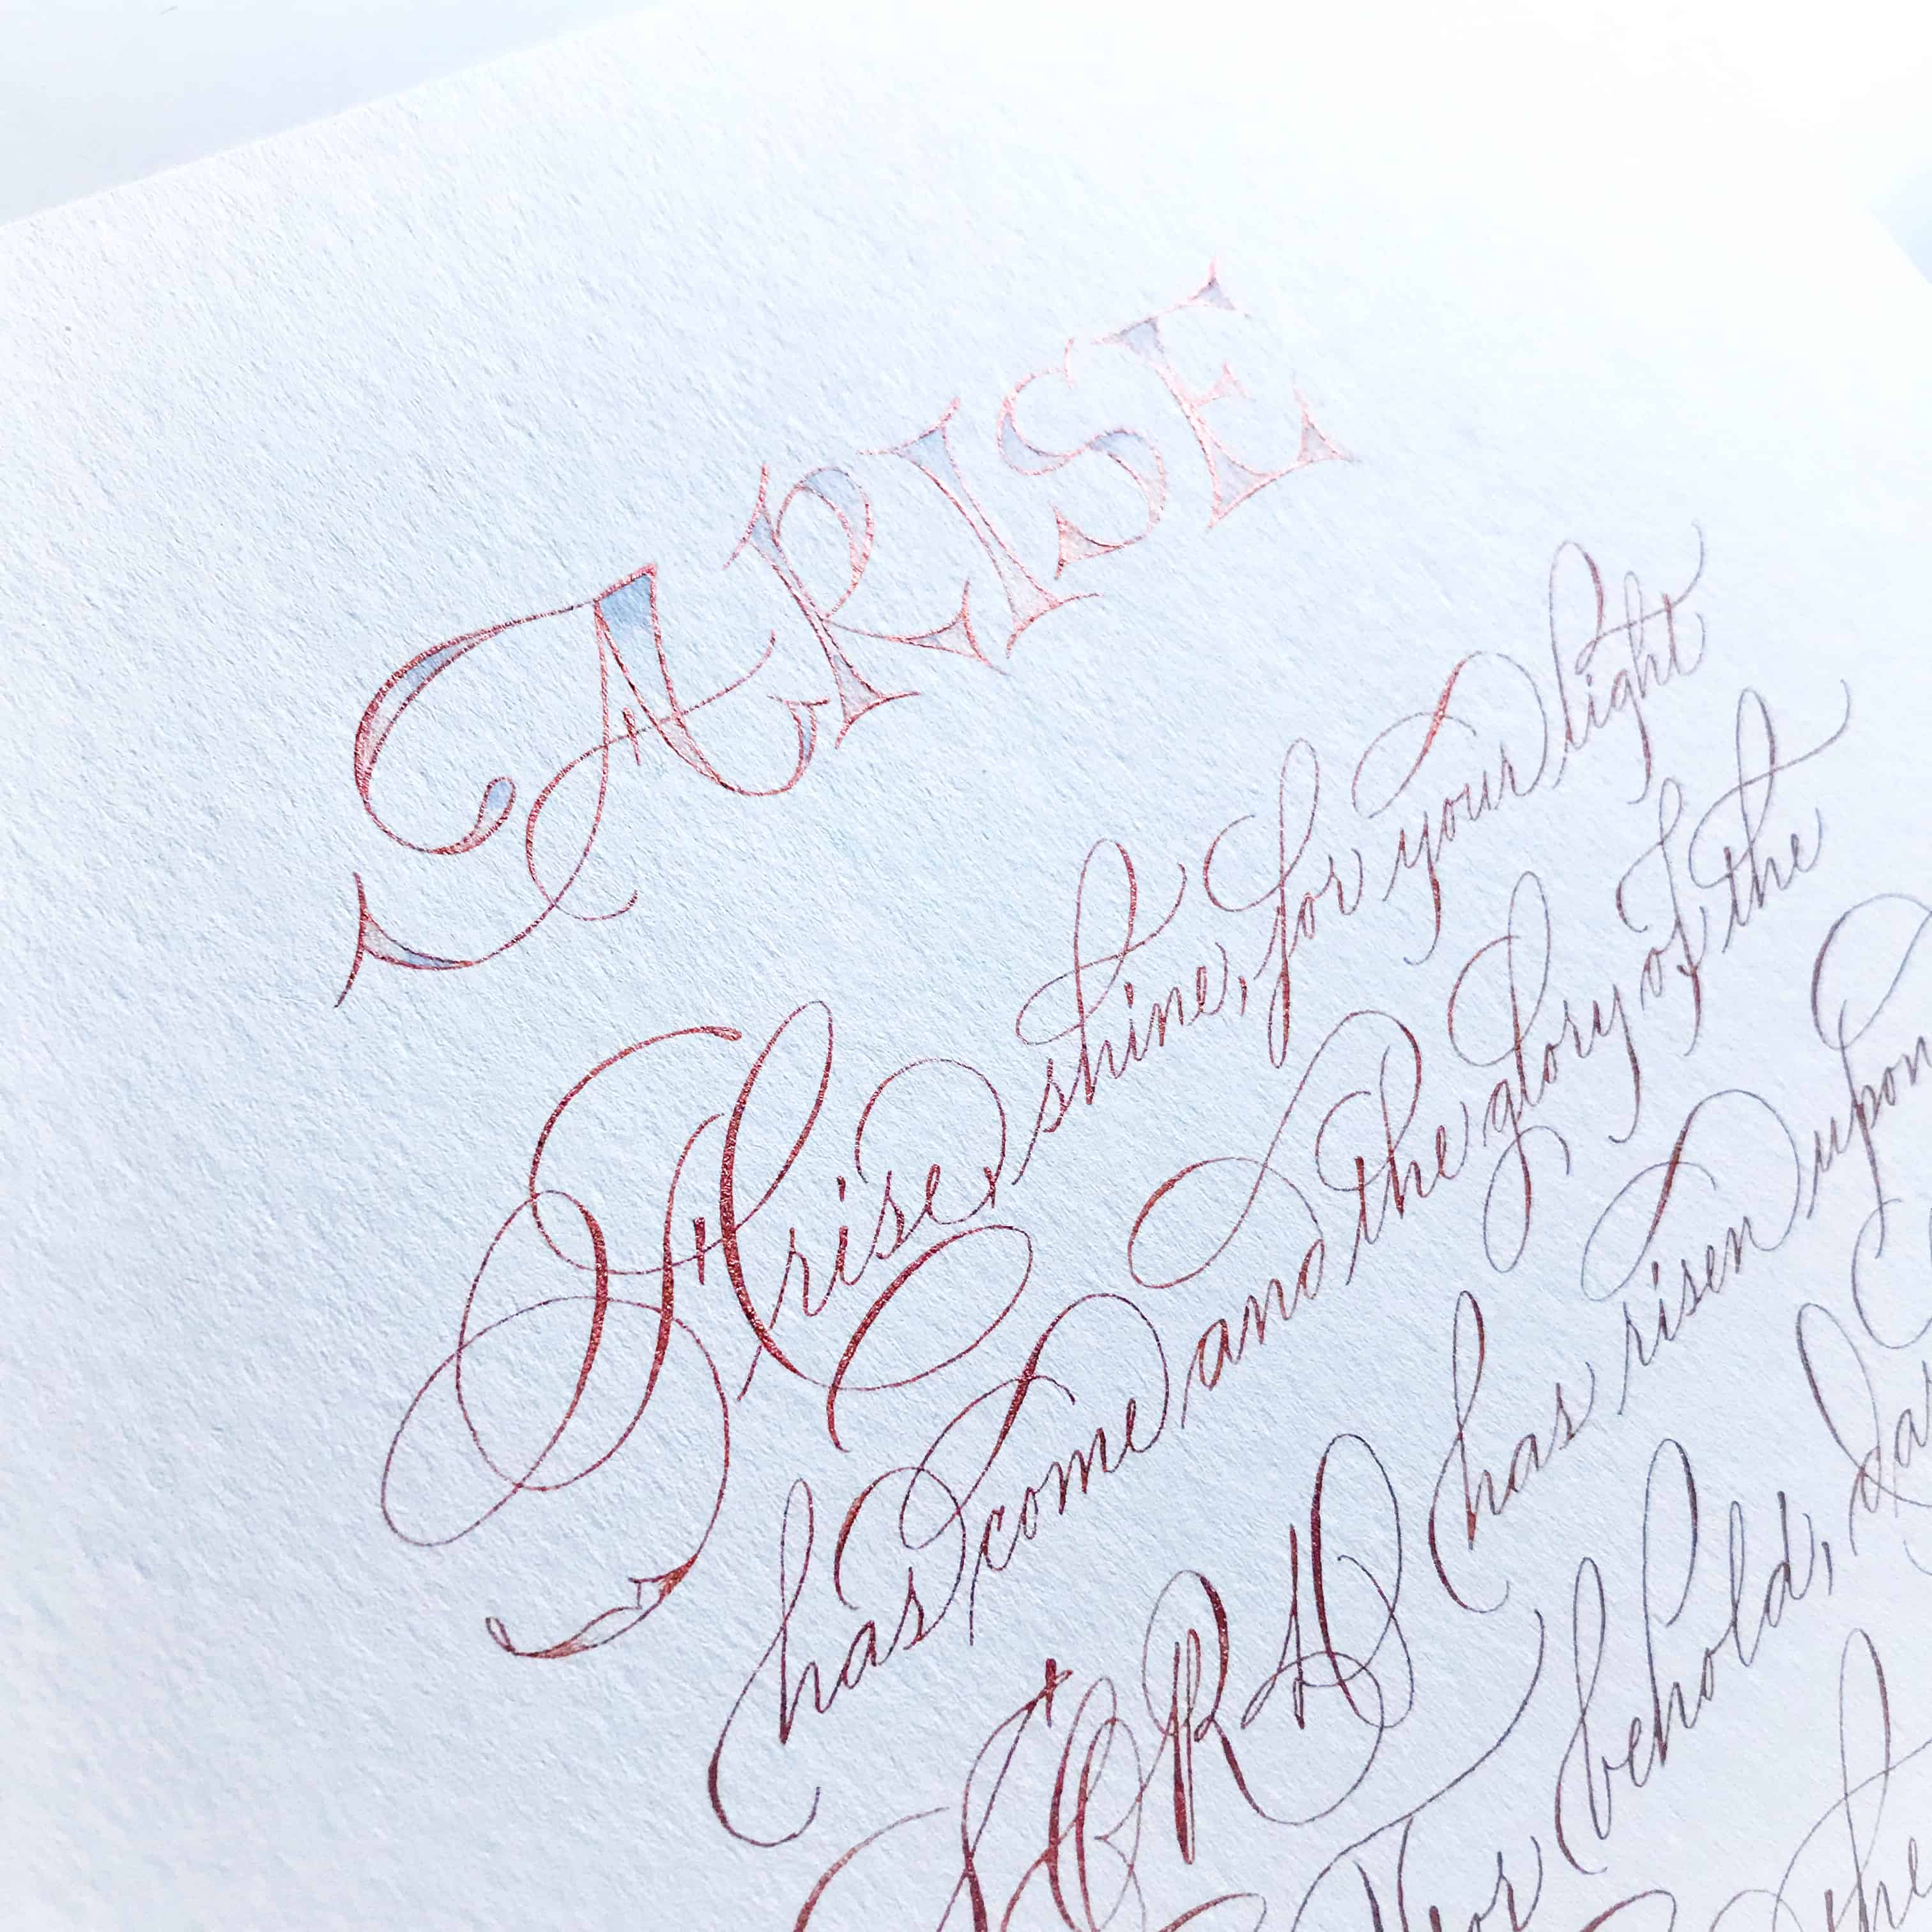 ARISE
Arise, shine, for your light
has come and the glory of the
LORD has risen upon
For behold,
the